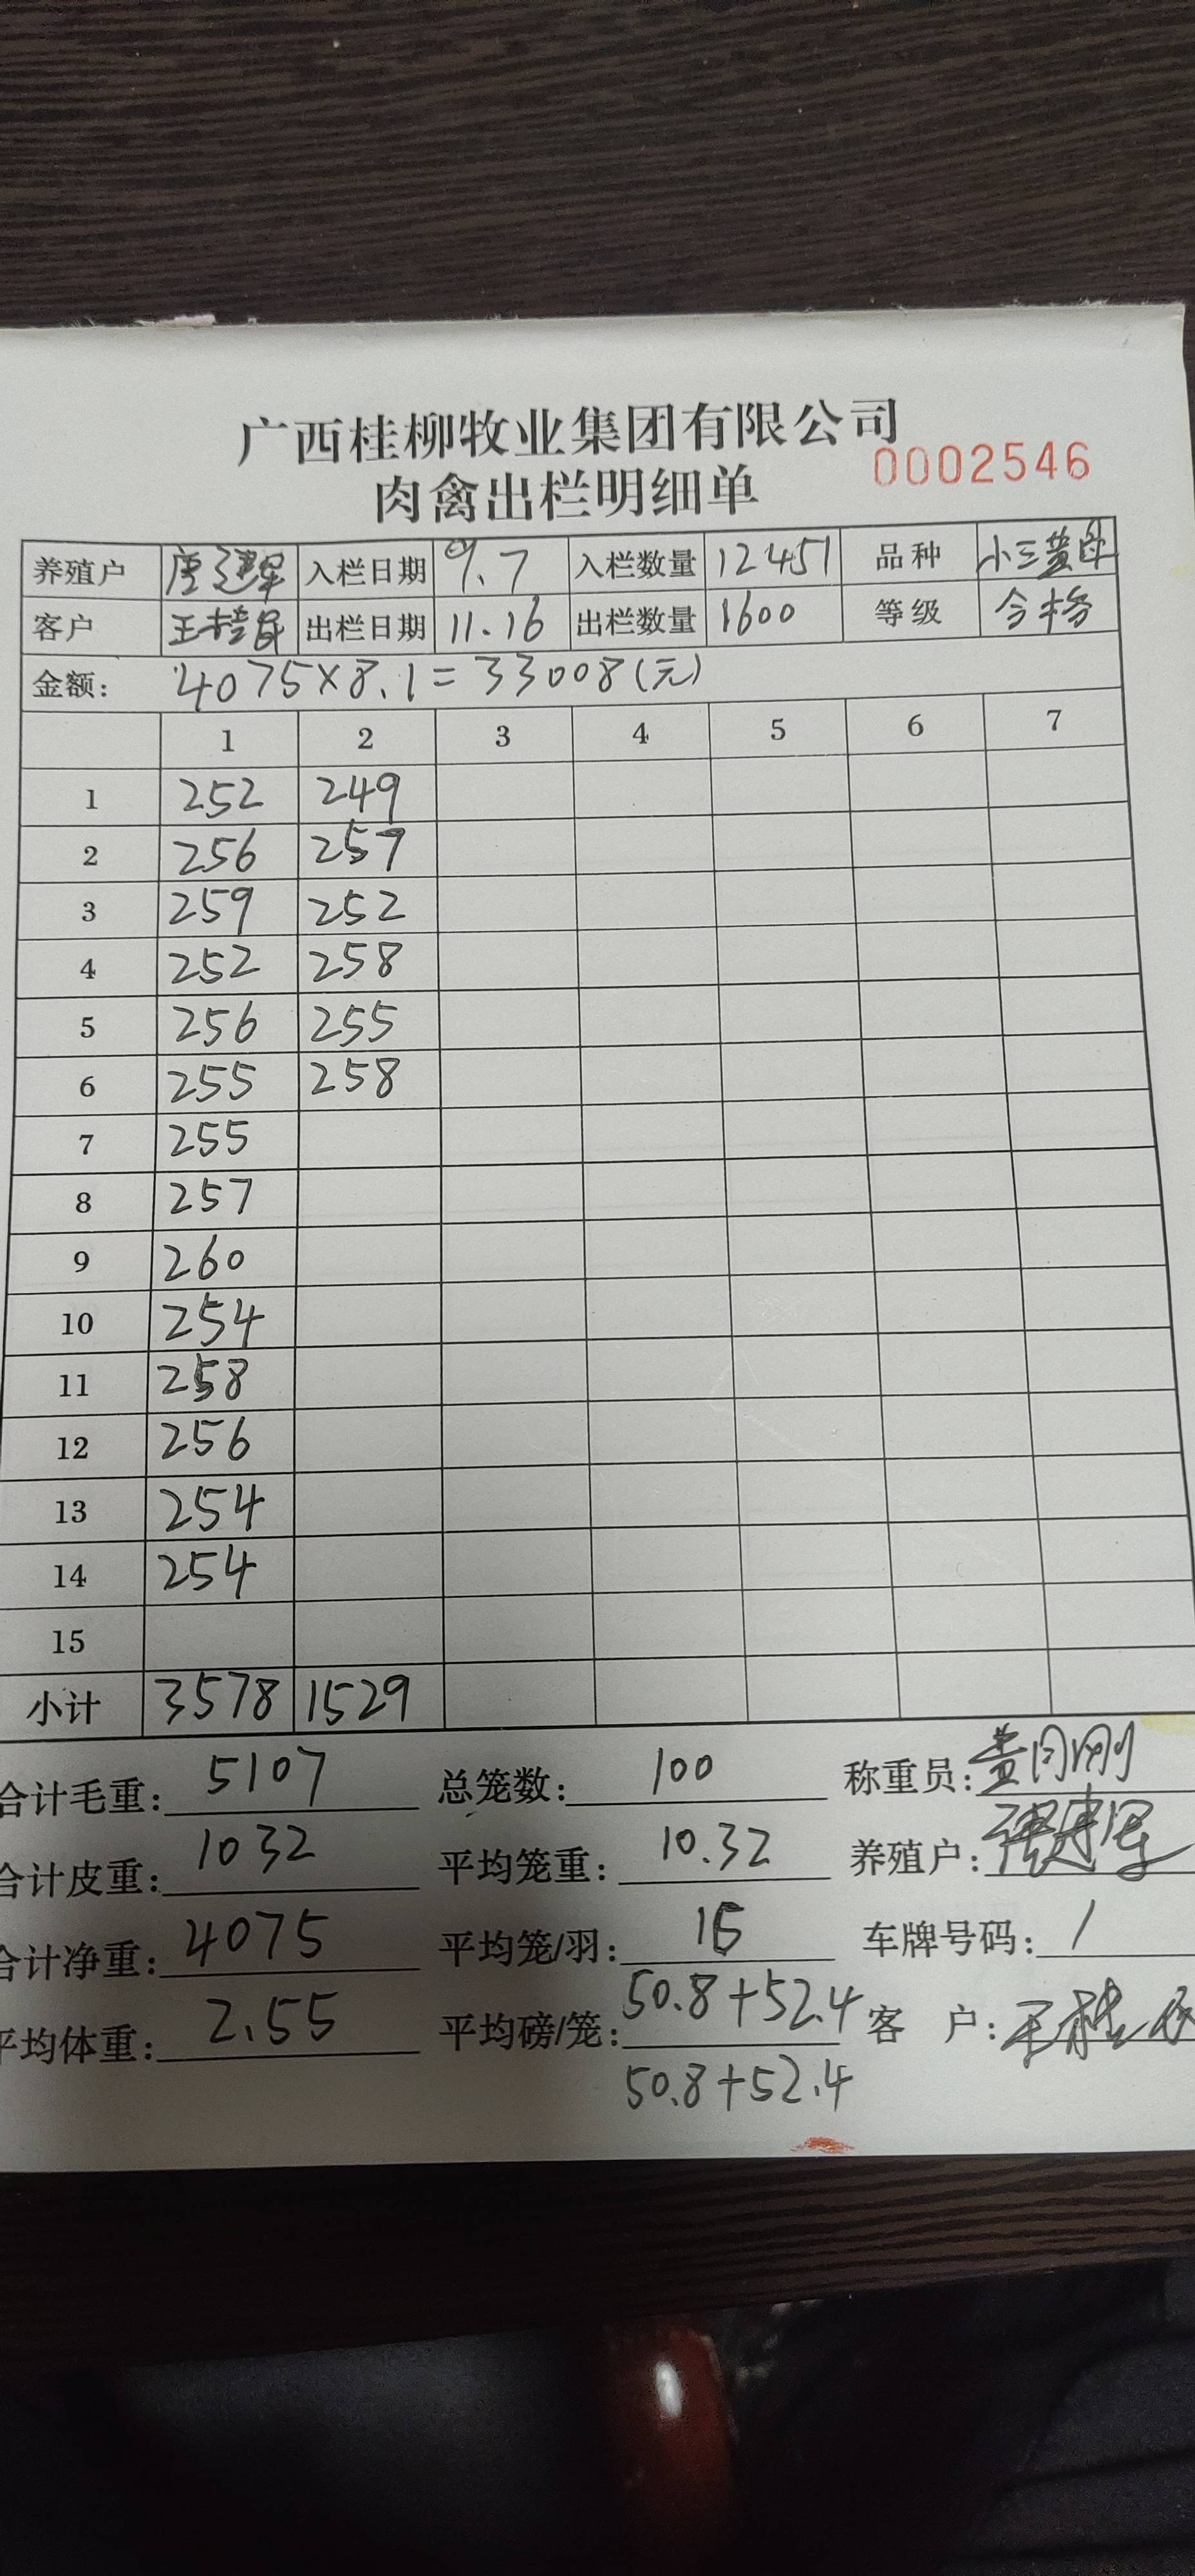 广西桂柳牧业集团有限公司
肉禽出栏明细单 0002546
养殖户 唐建军 入栏日期 9.7 入栏数量 12451 品种 小三黄母
客户 王桂民 出栏日期 11.16 出栏数量 1600 等级 合格
金额: 4075×8.1=33008(元)
1 2 3 4 5 6 7
1 252 249
2 256 257
3 259 252
4 252 258
5 256 255
6 255 258
7 255
8 257
9 260
10 254
11 258
12 256
13 254
14 254
15
小计 3578 1529
合计毛重: 5107 总笼数: 100 称重员:
合计皮重: 1032 平均笼重: 10.32 养殖户:
合计净重: 4075 平均笼/羽: 16 车牌号码: /
平均体重: 2.55 平均磅/笼: 50.8+52.4 客 户:
50.8+52.4